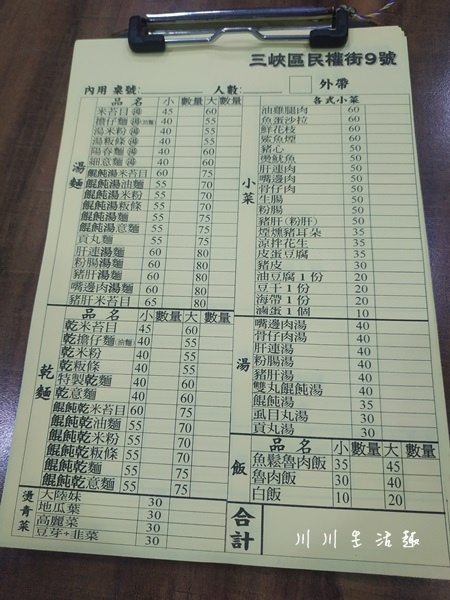 三峽區民權街9號
內用 桌號: 人數: 外帶
湯麵
品名 小 數量 大 數量
米苔目 45 60
擔仔麵 40 55
湯米粉 40 55
湯粄條 40 55
40 55
細意麵 40 55
餛飩湯米苔目 60 75
餛飩湯油麵 55 70
餛飩湯米粉 55 70
餛飩湯粄條 55 70
餛飩湯麵 55 75
餛飩湯意麵 55 75
貢丸麵 55 75
肝連湯麵 60 80
粉腸湯麵 60 80
豬肝湯麵 60 80
嘴邊肉湯麵 60 80
豬肝米苔目 65 80
乾麵
品名 小 數量 大 數量
乾米苔目 45 60
乾擔仔麵(油麵) 40 55
乾米粉 40 55
乾粄條 40 55
特製乾麵 40 55
乾意麵 40 55
餛飩乾米苔目 60 75
餛飩乾油麵 55 75
餛飩乾米粉 55 75
餛飩乾粄條 55 75
餛飩乾麵 55 75
餛飩乾意麵 55 75
燙青菜
大陸妹 30
地瓜葉 30
高麗菜 30
豆芽+韭菜 30
小菜
各式小菜
油雞腿肉 60
魚蛋沙拉 60
鮮花枝 60
鯊魚煙 60
豬心 50
燙魷魚 50
肝連肉 50
嘴邊肉 50
骨仔肉 50
生腸 50
粉腸 50
豬肝(粉肝) 50
煙燻豬耳朵 35
涼拌花生 35
皮蛋豆腐 35
豬皮 30
油豆腐1份 20
豆干1份 20
海帶1份 20
滷蛋1個 10
湯
嘴邊肉湯 40
骨仔肉湯 40
肝連湯 40
粉腸湯 40
豬肝湯 40
雙丸餛飩湯 40
餛飩湯 35
虱目丸湯 30
貢丸湯 30
飯
品名 小 數量 大 數量
魚鬆魯肉飯 35 45
魯肉飯 30 40
白飯 10 20
合計
川川生活趣